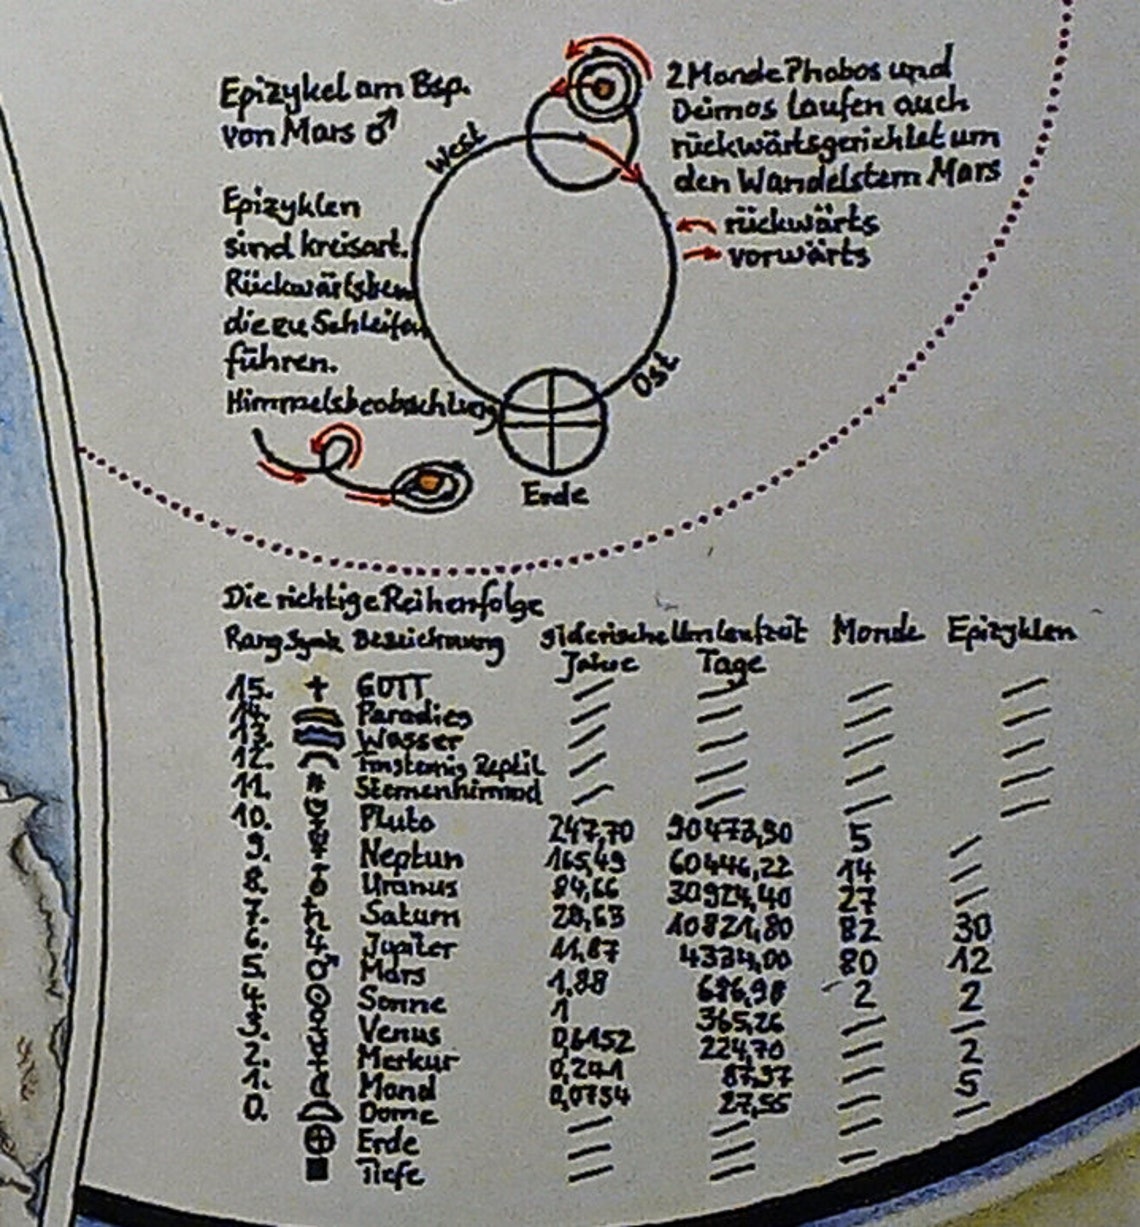 Epizykel am Bsp.
von Mars ♂
2 Monde Phobos und
Deimos laufen auch
rückwärtsgerichtet um
den Wandelstern Mars
rückwärts
vorwärts
West
Epizyklen
sind kreisart.
die zu Schleifen
führen.
Himmelsbeobachtung
Ost
Erde
Die richtige Reihenfolge
Rang Symb. Bezeichnung siderische Umlaufzeit Monde Epizyklen
Jahre Tage
15. GOTT
14. Paradies
13. Wasser
12. Finsternis Reptil
11.
10. Pluto 247,70 90473,90 5
9. Neptun 165,49 60446,22 14
8. Uranus 84,66 30924,40 27
7. Saturn 29,63 10821,80 82 30
6. Jupiter 11,87 4334,00 80 12
5. Mars 1,88 686,98 2 2
4. Sonne 1 365,26
3. Venus 0,6152 224,70 2
2. Merkur 0,241 87,97 5
1. Mond 0,0754 27,55
0. Dome
Erde
Tiefe